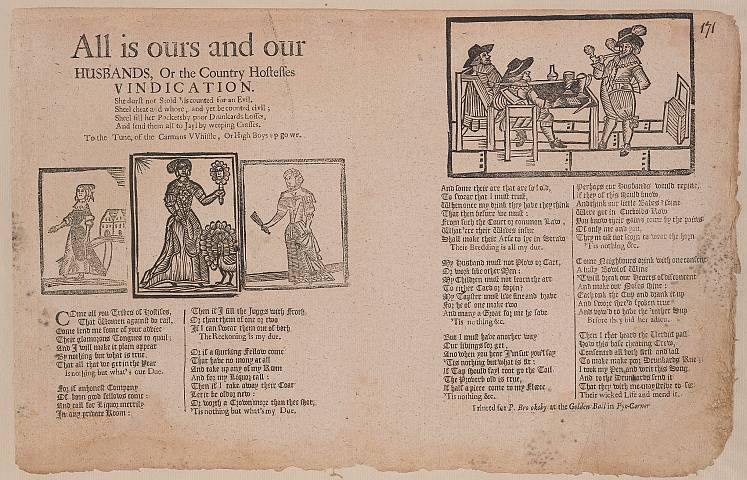 All is ours and our
HUSBANDS, Or the Country Hostesses
VINDICATION.
She durst not Scold 'tis counted for an Evil,
Sheel cheat and whore, and yet be counted civil;
Sheel fill her Pockets by poor Drunkards Losses,
And send them all to Jayl by weeping Crosses.
To the Tune, of the Carmans VVhistle, Or High Boys up go we.
171
COme all you Tribes of Hostises,
That Women against do rail,
Come lend me some of your advice
Their glamorous Tongues to quail;
And I will make it plain appear
By nothing but what is true,
That all that we get in the Year
Is nothing but what's our Due.
For if an honest Company
Of boon good fellows come:
And call for Liquor merrily
In any private Room:
Then if I fill the Juggs with Froth,
Or cheat them of one or two
If I can swear them out of both,
The Reckoning is my due.
Or if a Lurking Fellow come
That have no mony at all
And take up any of my Room
And for my Liquor call:
Then if I take away their Coat
Let it be old or new:
Or worth a Crown more than the shot,
'Tis nothing but what's my Due.
And some there are that are so bold,
To swear that I must trust,
When once my drink they have they think
That then before we must:
From such the Court or common Law,
What 'ere their Wives insue
Shall make their Arse to lye in Straw
Their Bredding is all my due.
My Husband must not Plow or Cart,
Or work like other Men:
My Children must not learn the art
To either Card or Spin:
My Tapster must live fine and brave
For he of one make two
And many a Groat for me he save
'Tis nothing &c.
But I must have another way
Our livings for to get,
And when you hear I'm sure you'l say
'Tis nothing but what is fit:
If Tap should fayl root go the Tail
The Proverb old is true,
If half a piece come to my share
'Tis nothing &c.
Perhaps our Husbands would repine,
If they of this should know
And think our little Babes to some
Were get in Cuckolds Row
You know their gains come by the pains
Of only me and you,
They must not scorn to wear the horn
'Tis nothing &c.
Come Neighbours drink with one consent
A lusty Bowl of Wine
'Twill break our Hearts of discontent
And make our Noses shine:
Each took the Cup and drank it up
And swore she'd spoken true
And vow'd to have the rather Sup
Before they bid her adieu.
Then I that heard the Verdict past
How this base cheating Crew,
Consented all both first and last
To make make poor Drunkards Rue:
I took my Pen, and writ this Song,
And to the Drunkards send it
That they with me may strive to see
Their wicked Life and mend it.
Printed for P. Brooksby at the Golden-Ball in Pye-Corner